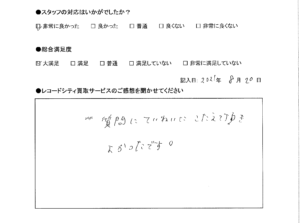 ●スタッフの対応はいかがでしたか？
☑非常に良かった □良かった □普通 □良くない □非常に良くない
●総合満足度
☑大満足 □満足 □普通 □満足していない □非常に満足していない
記入日 2021年 8月 20日
●レコードシティ買取サービスのご感想を聞かせてください
質問にていねいに こたえて頂き
よかったです。